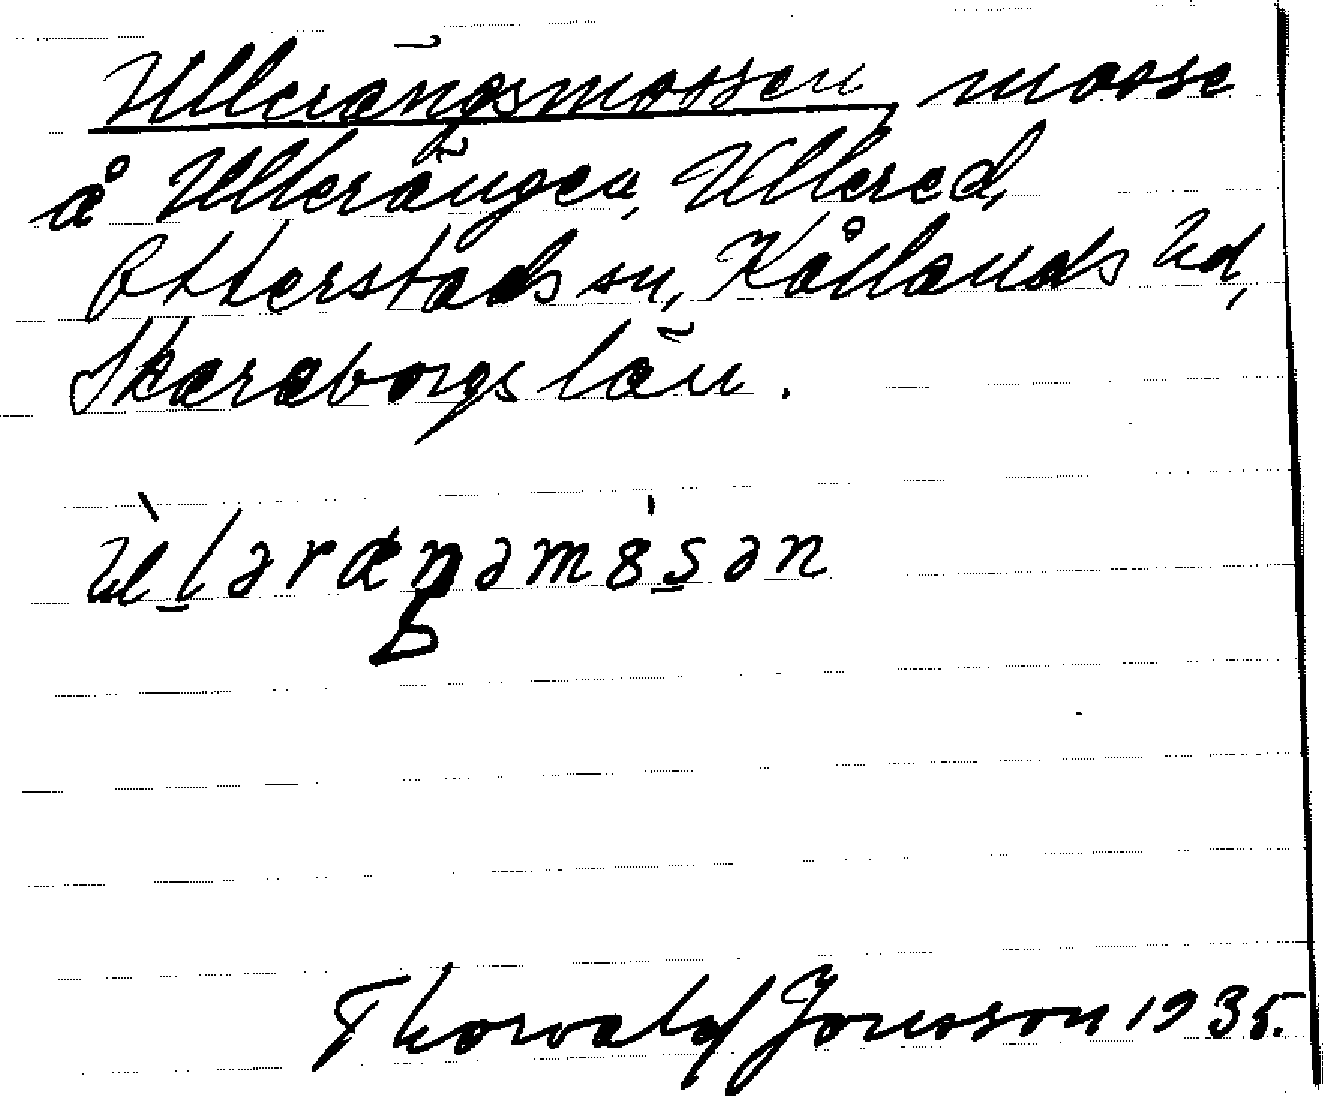 Ullerängsmossen, mosse
å Ullerängen, Ullered,
Otterstads sn, Kållands hd,
Skaraborgs län.
ùl̠əræŋəmȯs̠ən
Thorvald Jonsson 1935.